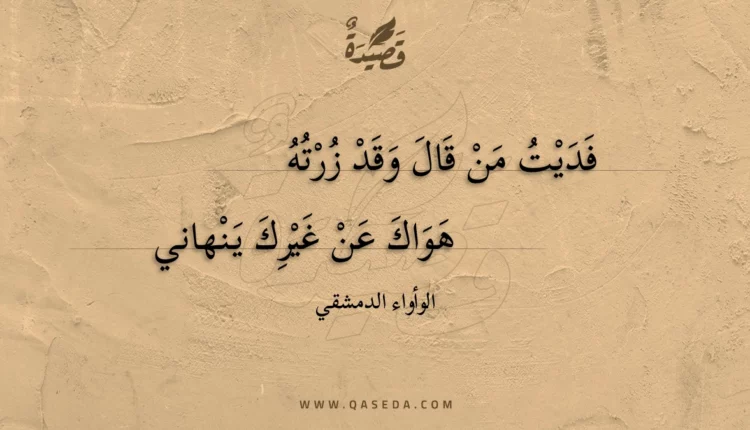 قَصِيْدَةٌ
فَدَيْتُ مَنْ قَالَ وَقَدْ زُرْتُهُ
هَوَاكَ عَنْ غَيْرِكَ يَنْهاني
الوأواء الدمشقي
WWW.QASEDA.COM